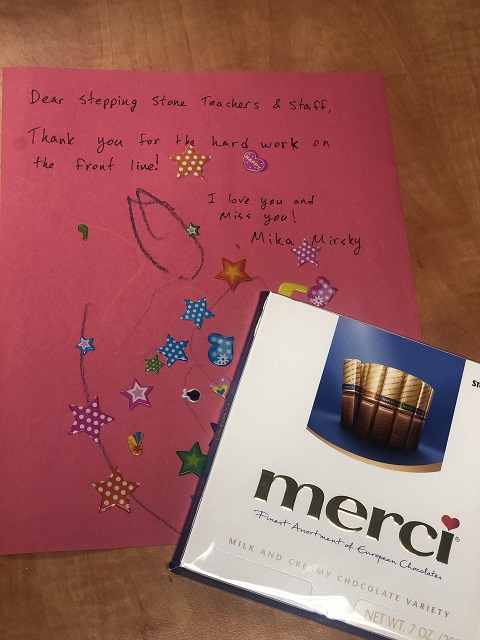 Dear Stepping Stone Teachers & Staff,
Thank you for the hard work on
the front line!
I love you and
Miss you!
Mika Mirsky
merci
Finest Assortment of European Chocolates
MILK AND CREAMY CHOCOLATE VARIETY
NET WT. 7 OZ